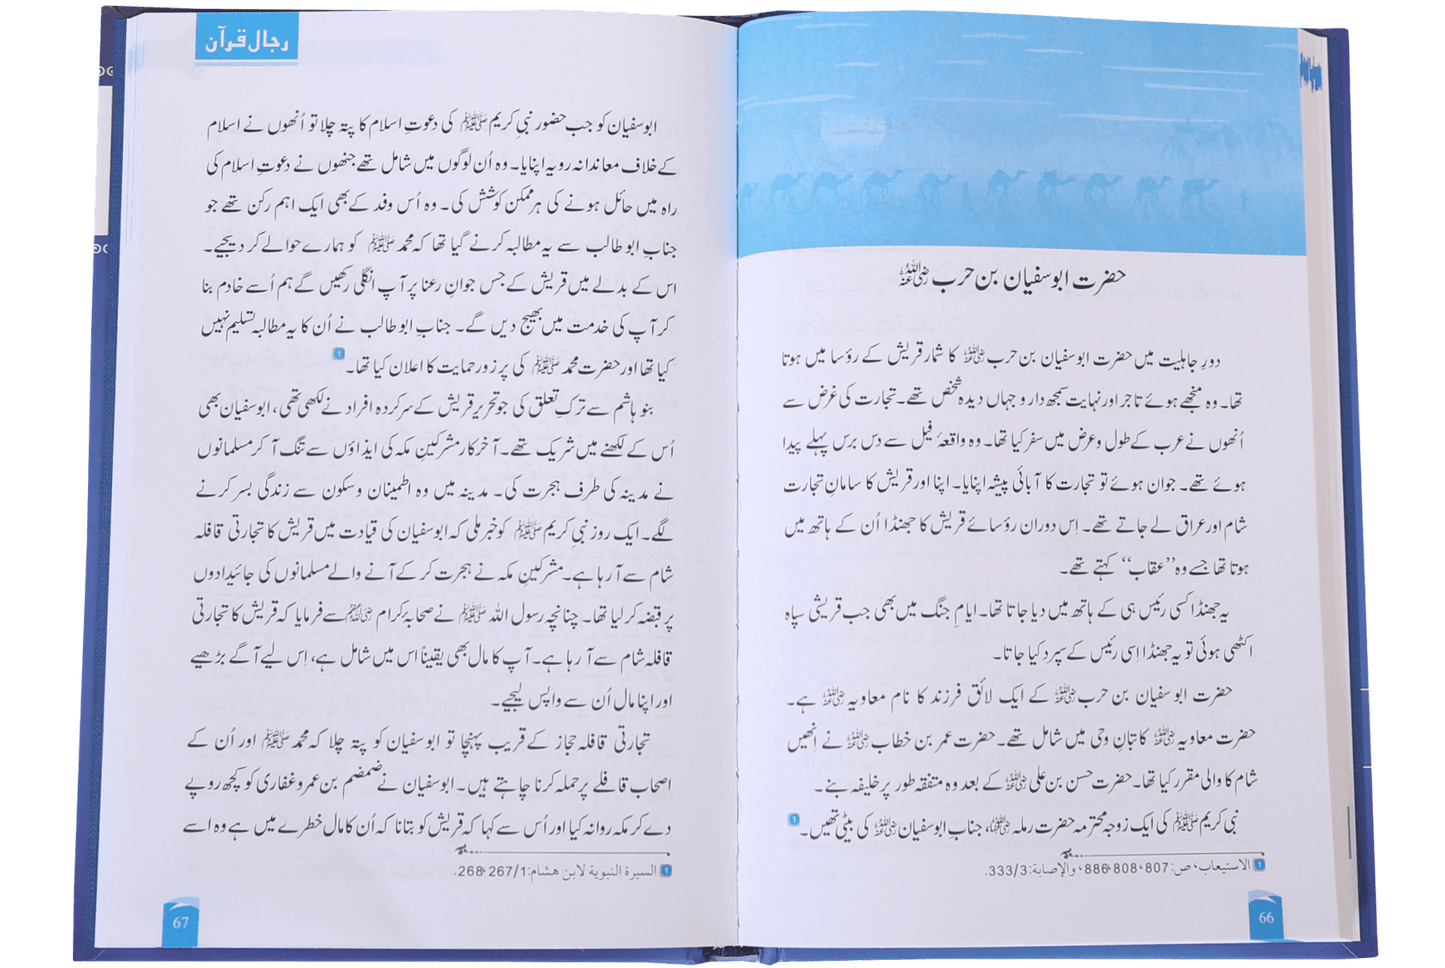 حضرت ابوسفیان بن حرب رضی اللہ عنہ
دورِ جاہلیت میں حضرت ابوسفیان بن حرب رضی اللہ عنہ کا شمار قریش کے رؤسا میں ہوتا
تھا۔ وہ منجھے ہوئے تاجر اور نہایت سمجھ دار و جہاں دیدہ شخص تھے۔ تجارت کی غرض سے
اُنھوں نے عرب کے طول و عرض میں سفر کیا تھا۔ وہ واقعۂ فیل سے دس برس پہلے پیدا
ہوئے تھے۔ جوان ہوئے تو تجارت کا آبائی پیشہ اپنایا۔ اپنا اور قریش کا سامانِ تجارت
شام اور عراق لے جاتے تھے۔ اِس دوران رؤسائے قریش کا جھنڈا اُن کے ہاتھ میں
ہوتا تھا جسے وہ ’’عقاب‘‘ کہتے تھے۔
یہ جھنڈا کسی رئیس ہی کے ہاتھ میں دیا جاتا تھا۔ ایامِ جنگ میں بھی جب قریشی سپاہ
اکٹھی ہوئی تو یہ جھنڈا اِسی رئیس کے سپرد کیا جاتا۔
حضرت ابوسفیان بن حرب رضی اللہ عنہ کے ایک لائق فرزند کا نام معاویہ رضی اللہ عنہ ہے۔
حضرت معاویہ رضی اللہ عنہ کاتبانِ وحی میں شامل تھے۔ حضرت عمر بن خطاب رضی اللہ عنہ نے اِنھیں
شام کا والی مقرر کیا تھا۔ حضرت حسن بن علی رضی اللہ عنہ کے بعد وہ متفقہ طور پر خلیفہ بنے۔
نبی کریم ﷺ کی ایک زوجہ محترمہ حضرت رملہ رضی اللہ عنہا، جنابِ ابوسفیان رضی اللہ عنہ کی بیٹی تھیں۔ 1
1 الاستیعاب، ص: 807، 808، 886، والإصابة: 333/3.
66
رجال قرآن
ابوسفیان کو جب حضور نبی کریم ﷺ کی دعوتِ اسلام کا پتہ چلا تو اُنھوں نے اسلام
کے خلاف معاندانہ رویہ اپنایا۔ وہ اُن لوگوں میں شامل تھے جنھوں نے دعوتِ اسلام کی
راہ میں حائل ہونے کی ہر ممکن کوشش کی۔ وہ اُس وفد کے بھی ایک اہم رکن تھے جو
جناب ابو طالب سے یہ مطالبہ کرنے گیا تھا کہ محمد ﷺ کو ہمارے حوالے کر دیجیے۔
اس کے بدلے میں قریش کے جس جوانِ رعنا پر آپ انگلی رکھیں گے ہم اُسے خادم بنا
کر آپ کی خدمت میں بھیج دیں گے۔ جنابِ ابو طالب نے اُن کا یہ مطالبہ تسلیم نہیں
کیا تھا اور حضرت محمد ﷺ کی پرزور حمایت کا اعلان کیا تھا۔ 1
بنو ہاشم سے ترکِ تعلق کی جو تحریر قریش کے سرکردہ افراد نے لکھی تھی، ابوسفیان بھی
اُس کے لکھنے میں شریک تھے۔ آخر کار مشرکینِ مکہ کی ایذاؤں سے تنگ آ کر مسلمانوں
نے مدینہ کی طرف ہجرت کی۔ مدینہ میں وہ اطمینان وسکون سے زندگی بسر کرنے
لگے۔ ایک روز نبی کریم ﷺ کو خبر ملی کہ ابوسفیان کی قیادت میں قریش کا تجارتی قافلہ
شام سے آ رہا ہے۔ مشرکینِ مکہ نے ہجرت کر کے آنے والے مسلمانوں کی جائیدادوں
پر قبضہ کر لیا تھا۔ چنانچہ رسول اللہ ﷺ نے صحابہ کرام رضی اللہ عنہم سے فرمایا کہ قریش کا تجارتی
قافلہ شام سے آ رہا ہے۔ آپ کا مال بھی یقیناً اس میں شامل ہے، اِس لیے آگے بڑھیے
اور اپنا مال اُن سے واپس لیجیے۔
تجارتی قافلہ حجاز کے قریب پہنچا تو ابوسفیان کو پتہ چلا کہ محمد ﷺ اور اُن کے
اصحاب قافلے پر حملہ کرنا چاہتے ہیں۔ ابوسفیان نے ضمضم بن عمرو غفاری کو کچھ روپے
دے کر مکہ روانہ کیا اور اُس سے کہا کہ قریش کو بتانا کہ اُن کا مال خطرے میں ہے وہ اسے
1 السيرة النبوية لابن هشام: 267/1، 268.
67